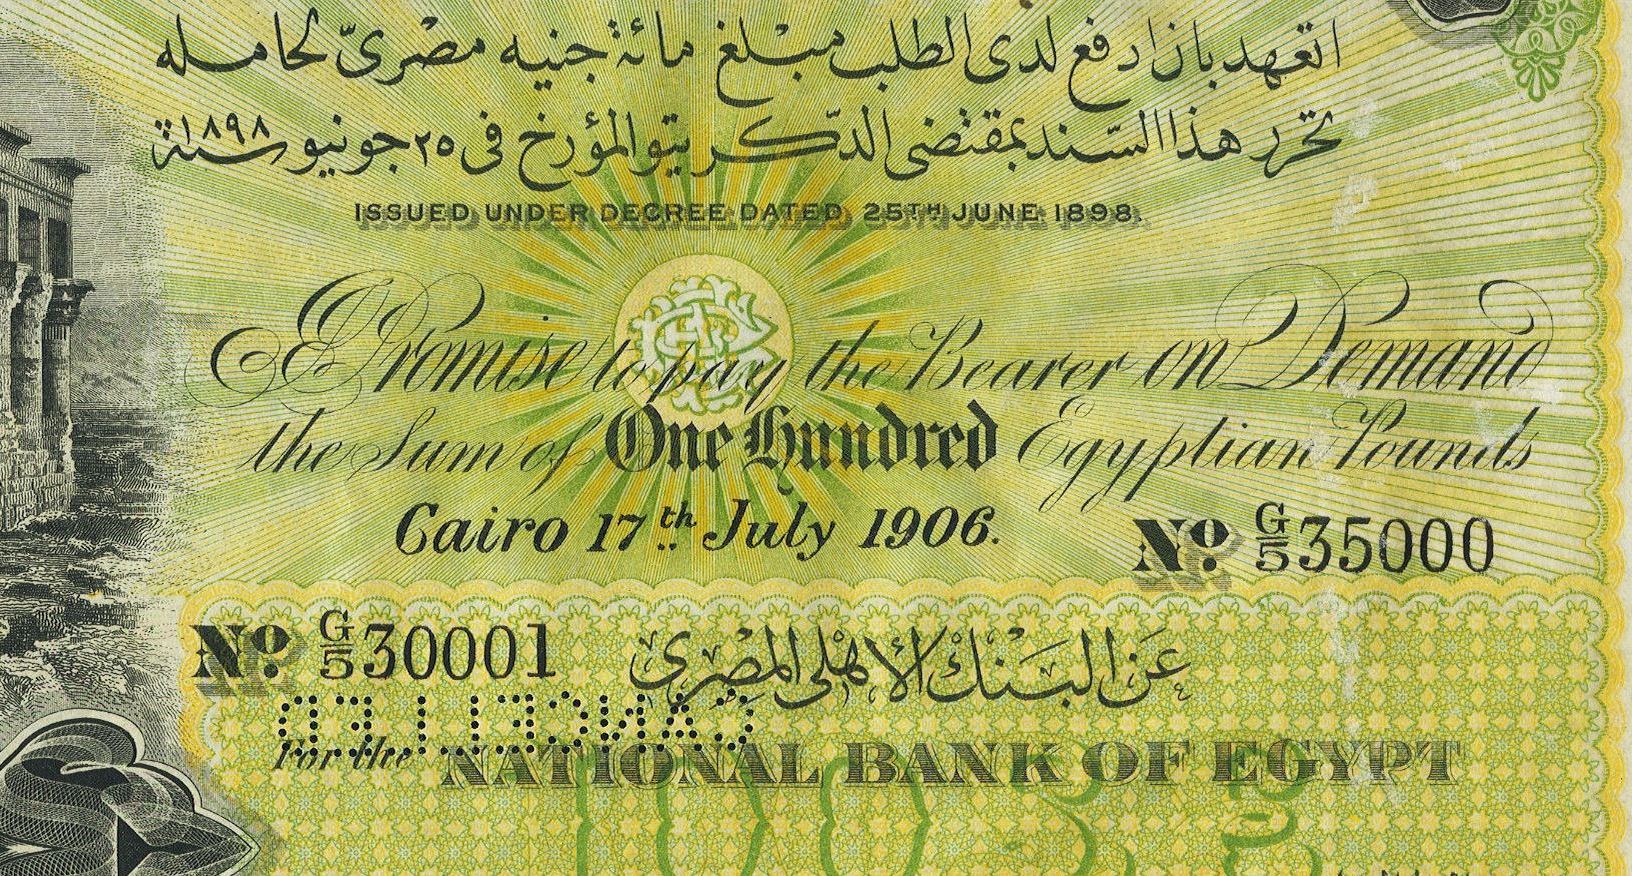 اتعهد بان ادفع لدى الطلب مبلغ مائة جنيه مصرىّ لحامله
تحرر هذا السّند بمقتضى الدّكريتو المؤرخ فى ٢٥ جونيو سنة ١٨٩٨
ISSUED UNDER DECREE DATED 25TH JUNE 1898.
I Promise to pay the Bearer on Demand
the Sum of One Hundred Egyptian Pounds
Cairo 17th July 1906.
No. G/5 35000
No. G/5 30001
عن البنك الاهلى المصرى
CANCELLED
For the NATIONAL BANK OF EGYPT
100